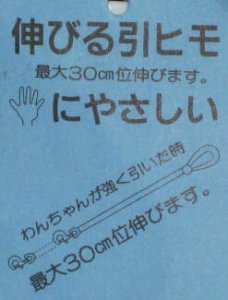 伸びる引ヒモ
最大30cm位伸びます。
にやさしい
わんちゃんが強く引いた時
最大30cm位伸びます。